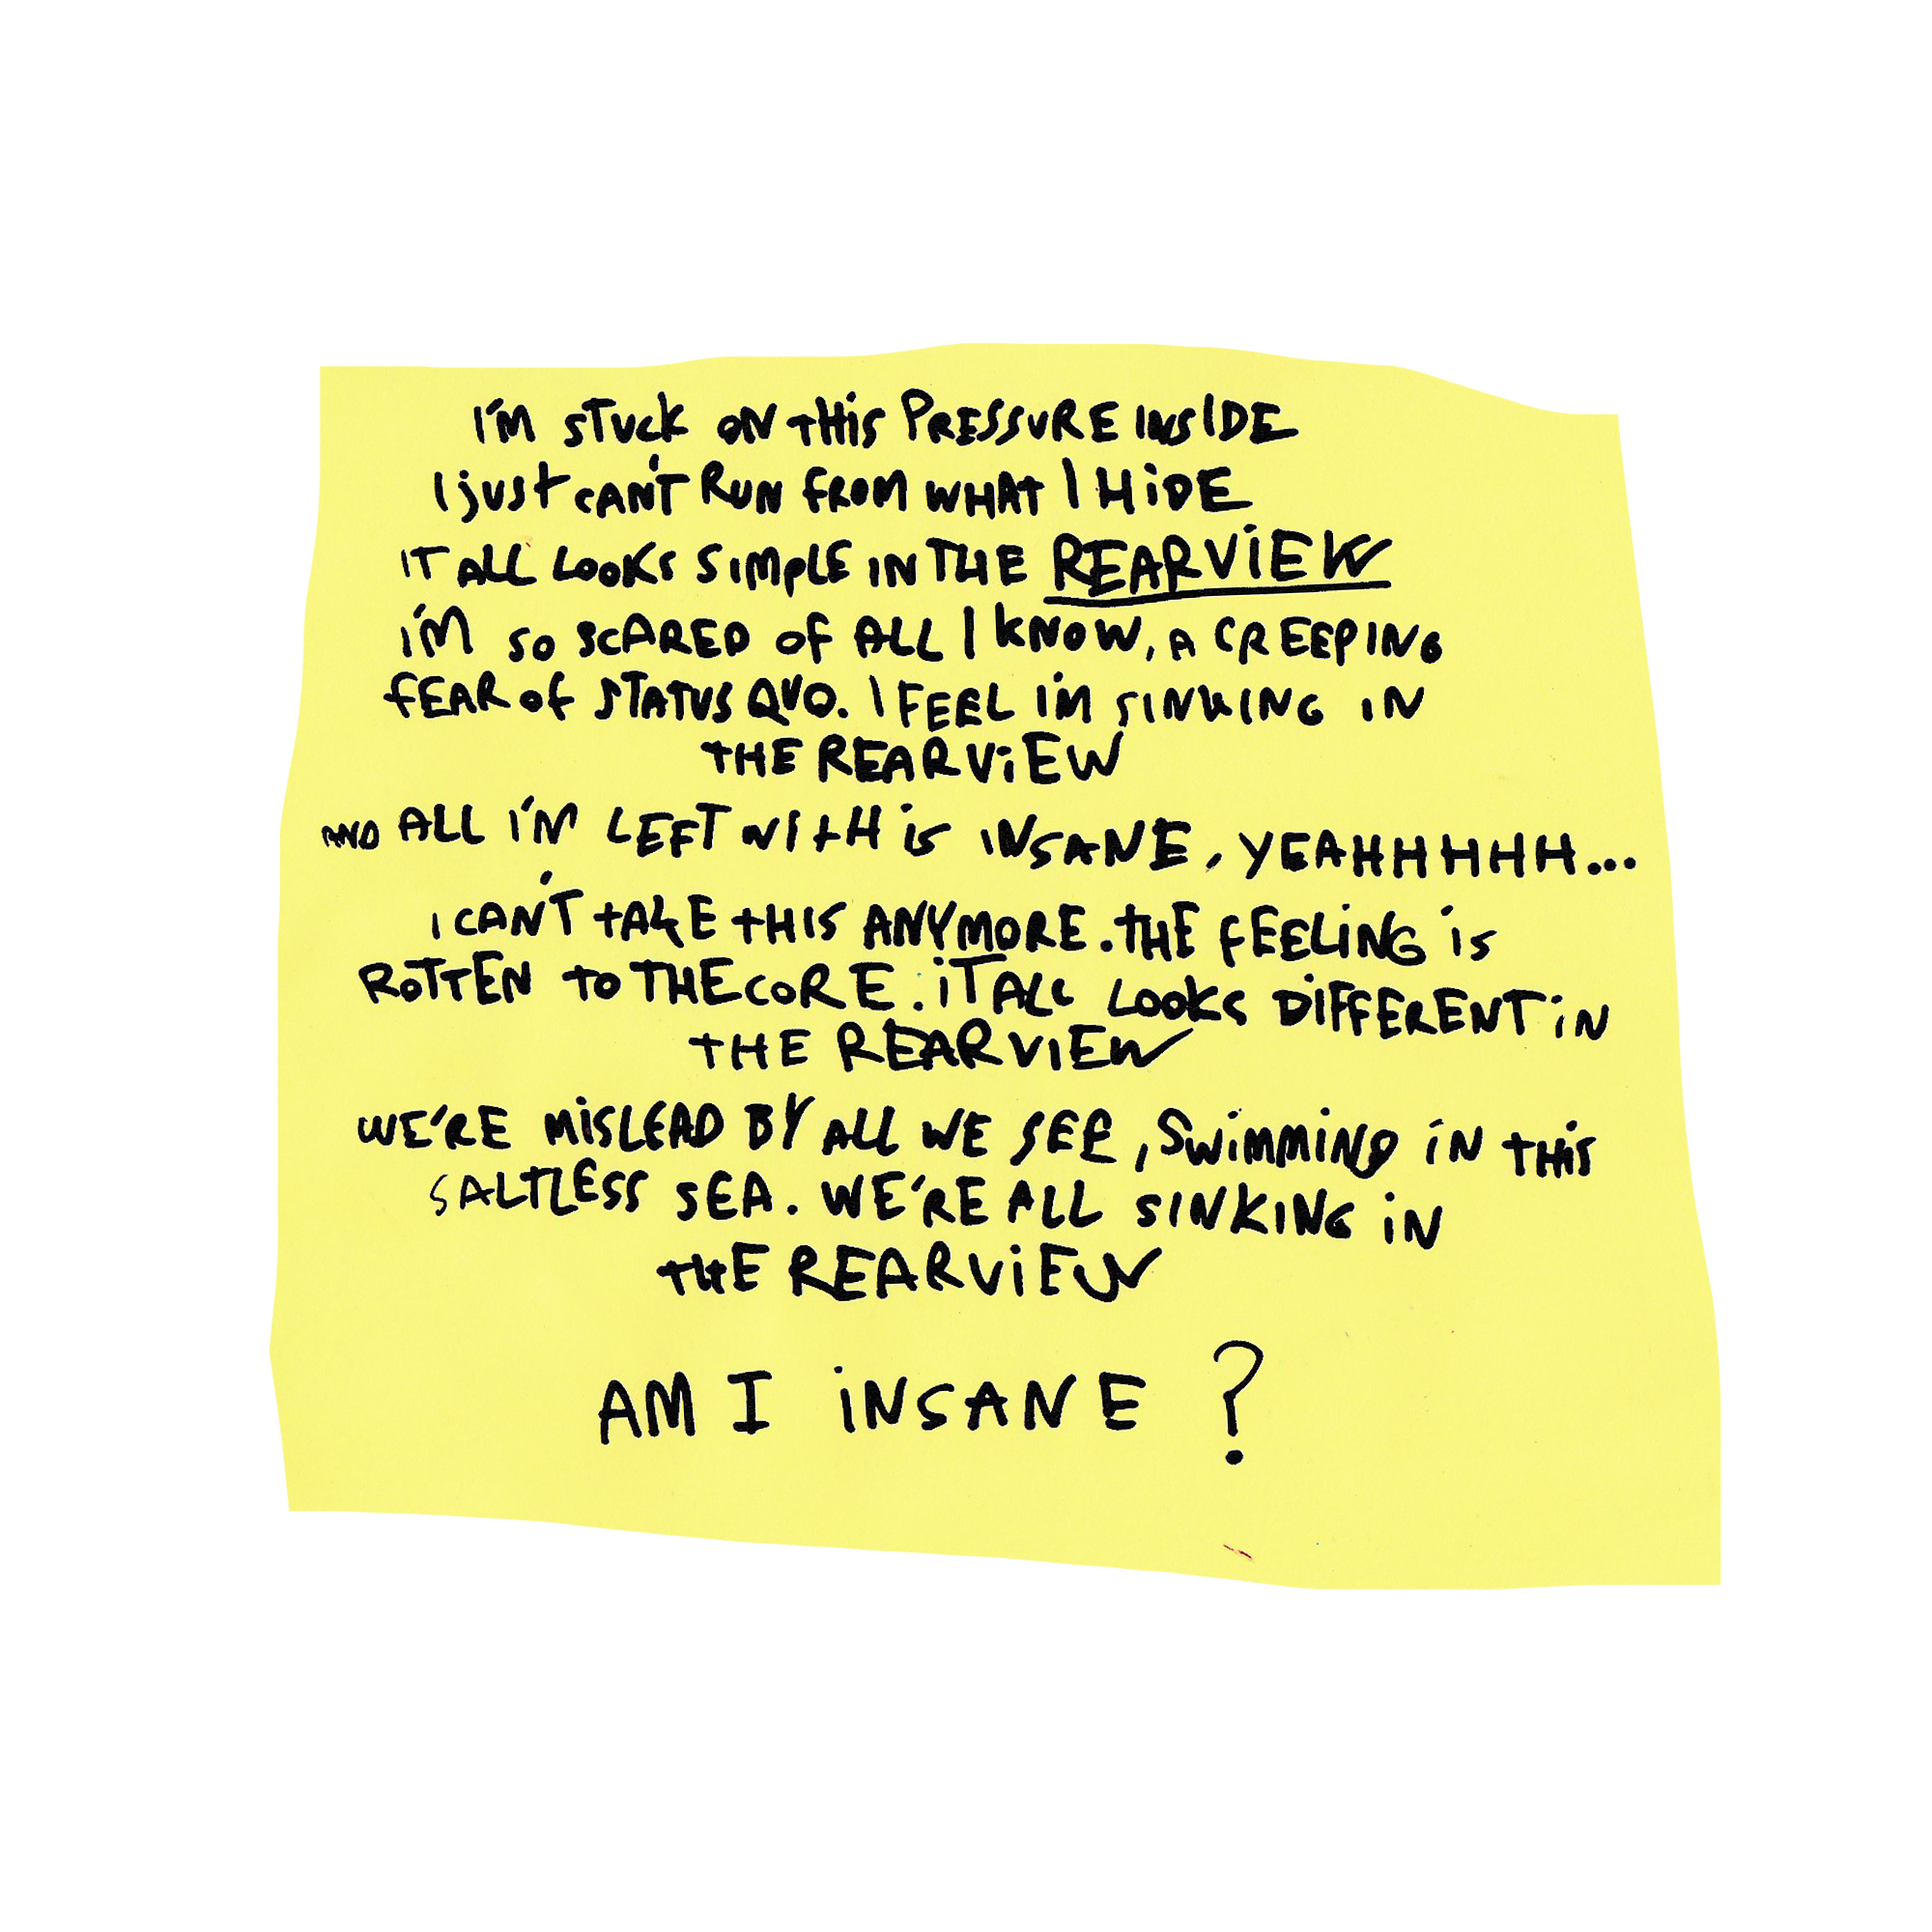 I'M STUCK ON THIS PRESSURE INSIDE
I JUST CAN'T RUN FROM WHAT I HIDE
IT ALL LOOKS SIMPLE IN THE REARVIEW
I'M SO SCARED OF ALL I KNOW, A CREEPING
FEAR OF STATUS QUO. I FEEL I'M SINKING IN
THE REARVIEW
AND ALL I'M LEFT WITH IS INSANE, YEAHHHHH...
I CAN'T TAKE THIS ANYMORE. THE FEELING IS
ROTTEN TO THE CORE. IT ALL LOOKS DIFFERENT IN
THE REARVIEW
WE'RE MISLEAD BY ALL WE SEE, SWIMMING IN THIS
SALTLESS SEA. WE'RE ALL SINKING IN
THE REARVIEW
AM I INSANE?